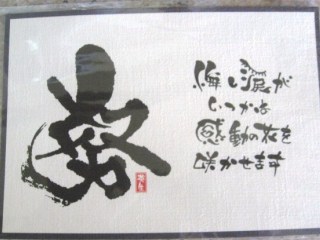 努
悔し涙が
いつかは
感動の花を
咲かせます